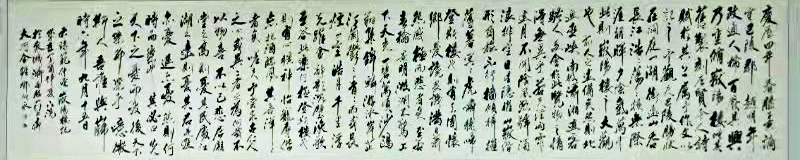 慶歷四年春滕子京謫
守巴陵郡越明年
政通人和百廢具興
乃重脩岳陽樓增其
舊制刻唐賢今人詩
賦於其上屬予作文以
記之予觀夫巴陵勝狀
在洞庭一湖銜遠山吞
長江浩浩湯湯橫無際
涯朝暉夕陰氣象萬千
此則岳陽樓之大觀
也前人之述備矣然則北
通巫峽南極瀟湘遷客
騷人多會於此覽物之情
得無異乎若夫霪雨霏霏
連月不開陰風怒號濁
浪排空日星隱耀山岳潛
形商旅不行檣傾楫摧
薄暮冥冥虎嘯猿啼
登斯樓也則有去國懷
鄉憂讒畏譏滿目蕭
然感極而悲者矣至若
春和景明波瀾不驚上
下天光一碧萬頃沙鷗
翔集錦鱗游泳岸芷
汀蘭郁郁青青而或長
煙一空皓月千里浮
光躍金靜影沉璧漁歌
互答此樂何極登斯樓也
則有心曠神怡寵辱偕
忘把酒臨風其喜洋洋
者矣嗟夫予嘗求古仁人
之心或異二者之為何哉不
以物喜不以己悲居廟
堂之高則憂其民處江
湖之遠則憂其君是進
亦憂退亦憂然則何
時而樂耶其必曰先
天下之憂而憂後天下
之樂而樂乎噫微
斯人吾誰與歸
時六年九月十五日